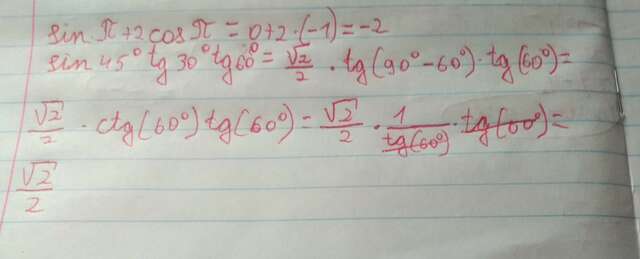 sin π + 2 cos π = 0 + 2 · (-1) = -2
sin 45° tg 30° tg 60° = √2/2 · tg(90° - 60°) · tg(60°) =
√2/2 · ctg(60°) tg(60°) = √2/2 · 1/tg(60°) · tg(60°) =
√2/2